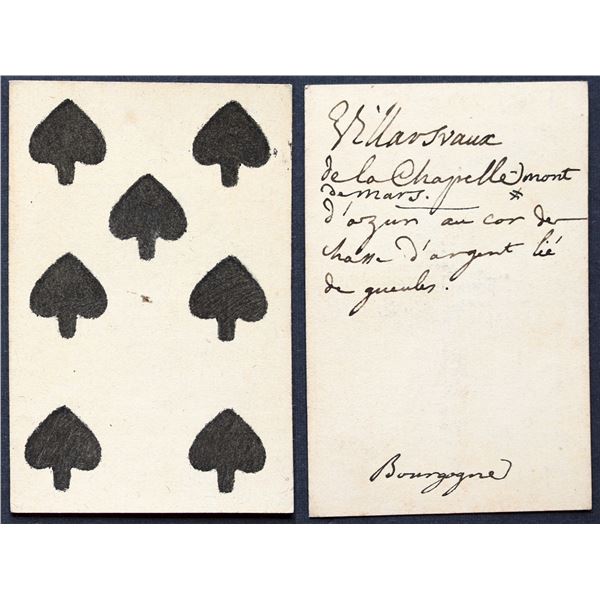 Villarsvaux
de la Chapelle mont
de mars. *
d'azur au cor de
chasse d'argent lié
de gueules.
Bourgogne